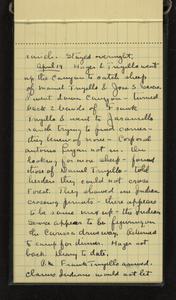 ranch. Stayed overnight.
April 19. Hager & Trujillo went
up the Canyon to catch sheep
of Manuel Trujillo & Jose S.
I went down Canyon - turned
back 2 bands of
Trujillo & went to Jaramillo
ranch trying to find carriers -
they knew of none - Corporal
Antonio not in - Am
looking for more sheep - found
those of Manuel Trujillo - told
herders they could not cross
Forest. They showed me Indian
crossing permits - there appears
to be some mix up - the Indian
Service appear to be figuring on
the Cernera driveway. Returned
to camp for dinner. Hager not
back. Diary to date.
P.M. Frank Trujillo arrived.
Claims Indians would not let